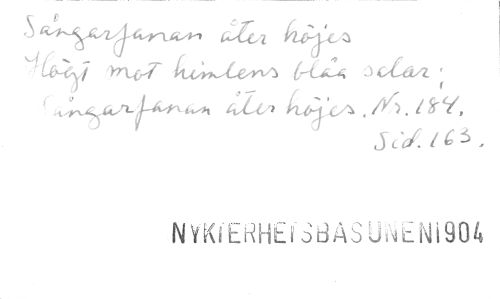 Sångarfanan åter höjes
Högt mot himlens blåa salar;
Sångarfanan åter höjes. Nr. 184.
Sid. 163.
NYKTERHETSBASUNEN 1904